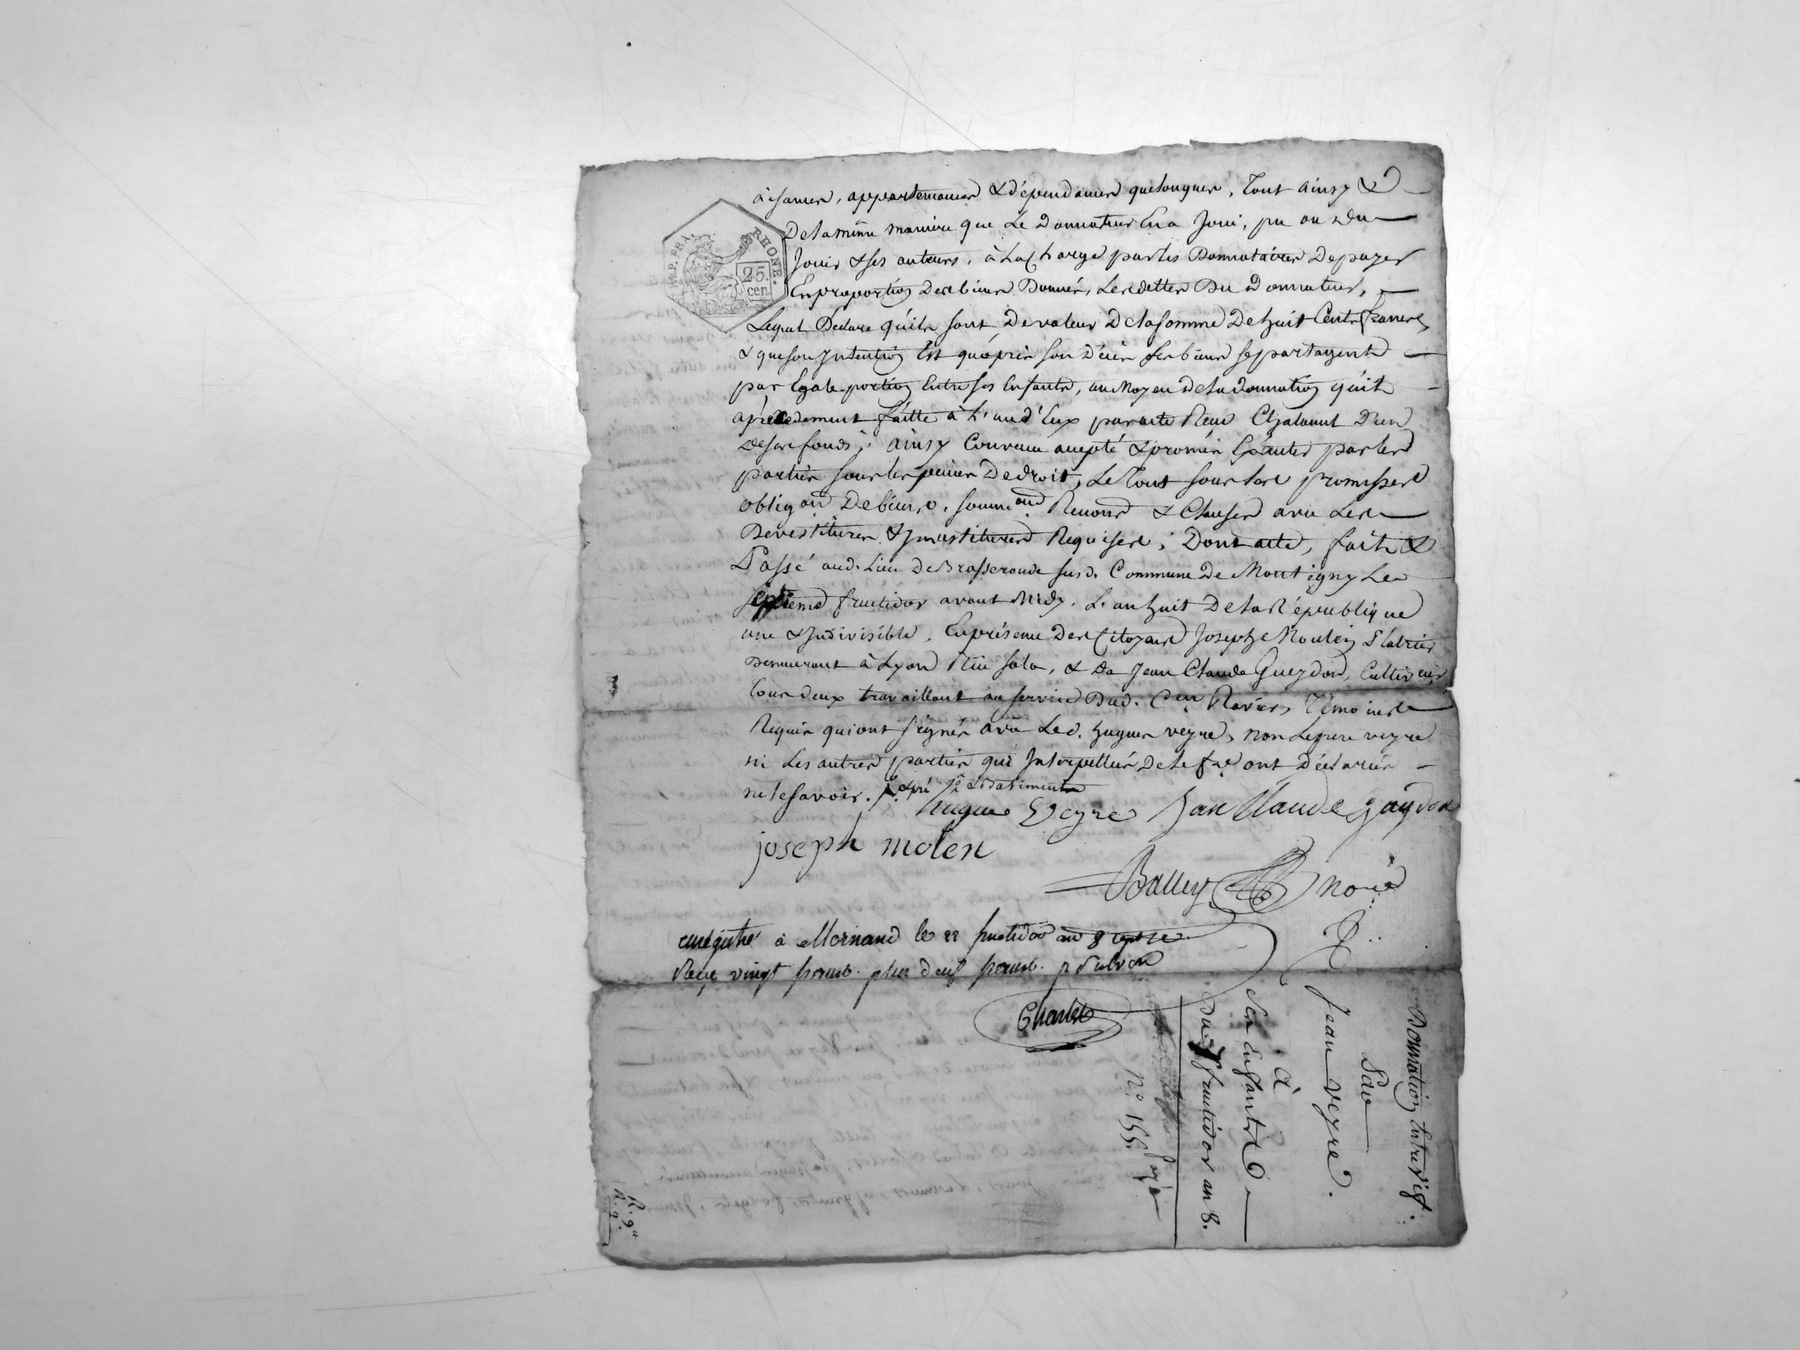 aisances, appartenances & dépendances quelconques, Tout ainsy &
De la même maniere que Le Donnateur En a Joui, pu ou du
Jouir & ses auteurs, à La Charge par les Donnataires De payer
En proportion Des biens Donnés, Les dettes Du Donnateur,
Lequel Declare qu'ils sont De valeur De la somme De huit Cents francs,
& que son Intention Est qu'après son Décès ses biens se partagent
par Egale portion Entre ses Enfants, au Moyen de la donnation qu'il
a précédement faitte à L'un d'Eux par acte Reçu Chatanut D'un
De ses fonds; ainsy Convenu accepté & promis Exécuter par les
parties sous les peines De droit, Le Tout sous leurs promesses
obligaons De biens, soumions Renons & Clauses avec Les
Devestitures & Investitures Requises; Dont acte, fait &
Passé aud. Lieu De Brasseronde susd. Commune De Montigny Le
septieme fructidor avant Midy. L'an huit De la République
une & Indivisible, En présence Des Citoyens Joseph Moulin Platrier
Demeurant à Lyon Rue Sala, & De Jean Claude Gueydon, Cultivateur
Tous deux travaillant au service Dud. Cen. Ravier, Témoins
Requis qui ont signés avec Led. hugues veyre, non Le pere veyre
ni Les autres parties qui Interpellés De le fre ont Déclarés
ne le savoir.
hugue Veyre Jan Claude gaydon
joseph molen
Balley nore
enregistré à Mornand le 22 fructidor an 8
Reçu vingt francs. plus deux francs. p subvon
Charlet
IMP. FRA.
RHONE.
25.
cen.
Donnation Entre vifs.
Par
Jean veyre.
à
Ses Enfants
Du 7 fructidor an 8.
N° 155.
R. 9
R. 9